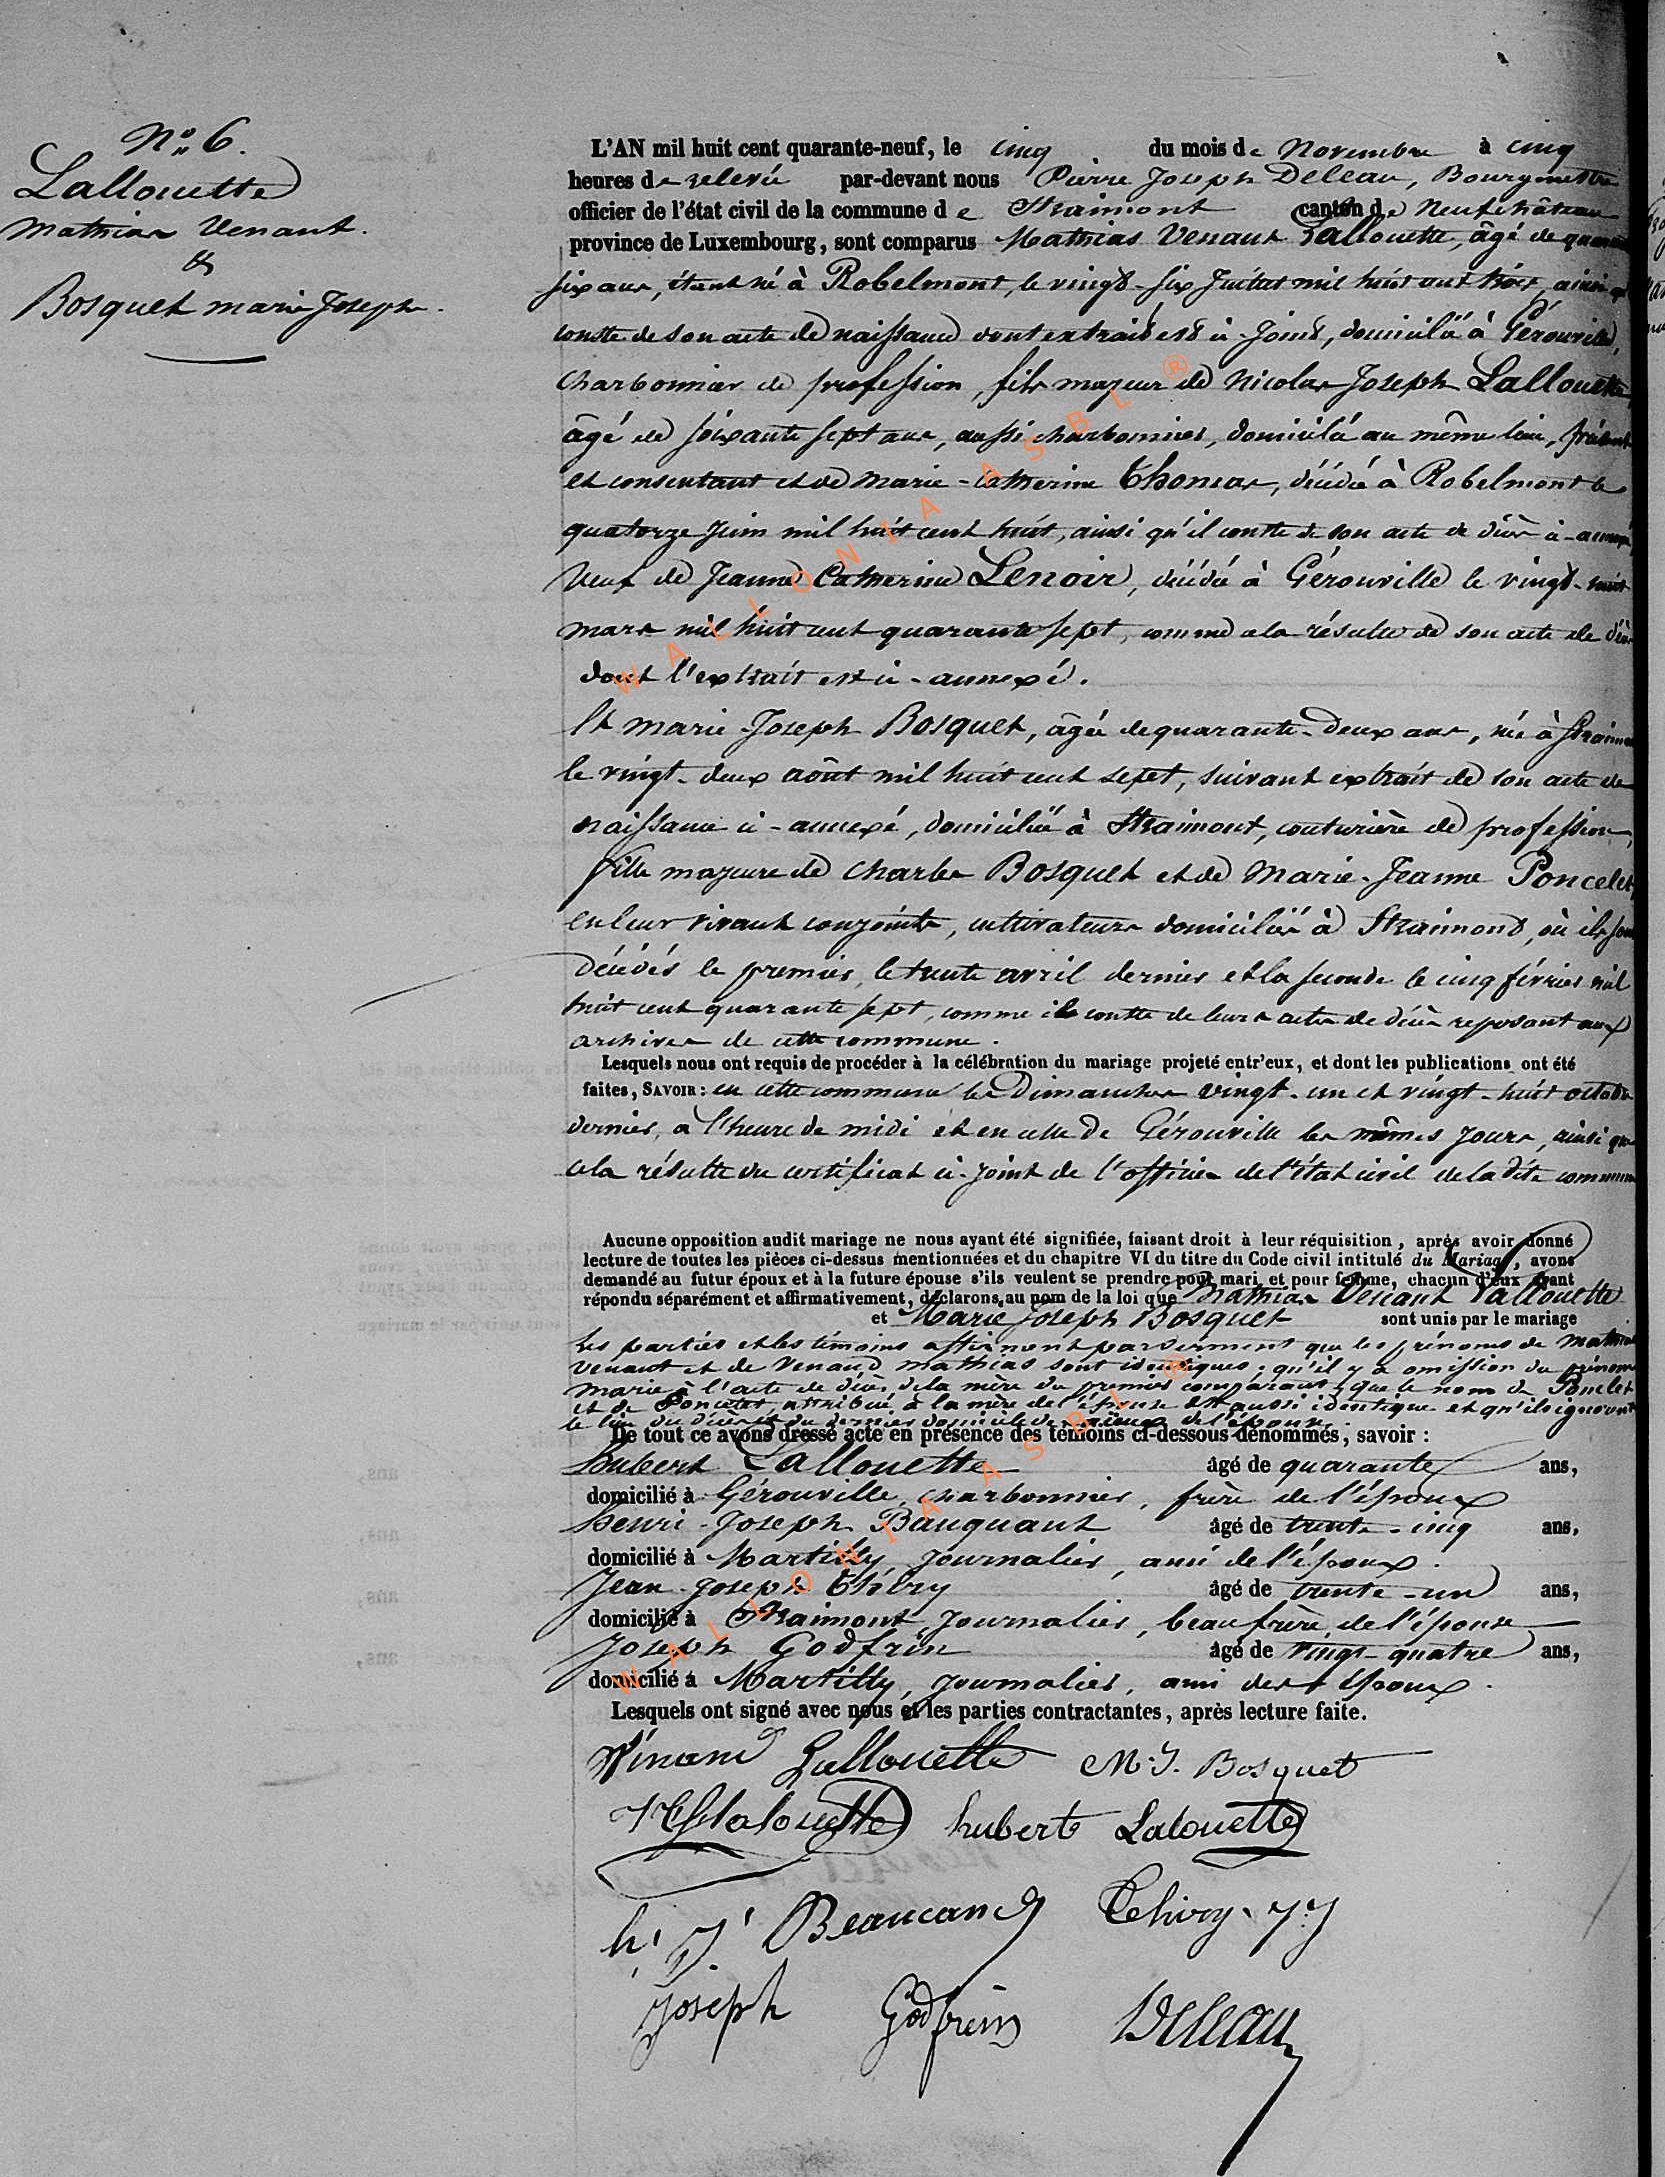 N° 6.
Lallouette
Mathias Venant.
&
Bosquet marie Joseph.
L'AN mil huit cent quarante-neuf, le cinq du mois de Novembre à cinq
heures de relevée par-devant nous Pierre Joseph Deleau, Bourgmestre
officier de l'état civil de la commune de Straimont canton de Neufchâteau
province de Luxembourg, sont comparus Mathias Venant Lallouette, âgé de quarante
six ans, étant né à Robelmont, le vingt-six Juillet mil huit cent trois, ainsi qu'il
conste de son acte de naissance dont extrait est ci-joint, domicilié à Gérouville,
Charbonnier de profession, fils majeur de Nicolas Joseph Lallouette
âgé de soixante sept ans, aussi charbonnier, domicilié au même lieu, présent
et consentant et de Marie-Catherine Thomas, décédée à Robelmont le
quatorze juin mil huit cent huit, ainsi qu'il conste de son acte de décès ci-annexé
Veuf de Jeanne Catherine Lenoir, décédée à Gérouville le vingt-huit
mars mil huit cent quarante sept, comme cela résulte de son acte de décès
dont l'extrait est ci-annexé.
Et Marie-Joseph Bosquet, âgée de quarante-deux ans, née à Straimont
le vingt-deux août mil huit cent sept, suivant extrait de son acte de
naissance ci-annexé, domiciliée à Straimont, couturière de profession,
fille majeure de Charles Bosquet et de Marie-Jeanne Poncelet,
en leur vivant conjoints, cultivateurs domiciliés à Straimont, où ils sont
décédés le premier, le trente avril dernier et la seconde le cinq février mil
huit cent quarante sept, comme il conste de leurs actes de décès reposant aux
archives de cette commune.
Lesquels nous ont requis de procéder à la célébration du mariage projeté entr'eux, et dont les publications ont été
faites, SAVOIR: en cette commune les Dimanches vingt-un et vingt-huit octobre
dernier, à l'heure de midi et en celle de Gérouville les mêmes jours, ainsi que
cela résulte du certificat ci-joint de l'officier de l'état civil de la dite commune
Aucune opposition audit mariage ne nous ayant été signifiée, faisant droit à leur réquisition, après avoir donné
lecture de toutes les pièces ci-dessus mentionnées et du chapitre VI du titre du Code civil intitulé du Mariage, avons
demandé au futur époux et à la future épouse s'ils veulent se prendre pour mari et pour femme, chacun d'eux ayant
répondu séparément et affirmativement, déclarons au nom de la loi que Mathias Venant Lallouette
et Marie Joseph Bosquet sont unis par le mariage
Les parties et les témoins affirment par serment que les prénoms de Mathias
Venant et de Venand Mathias sont identiques; qu'il y a omission du prénom
Marie à l'acte de décès de la mère du premier comparant; que le nom de Poncelet
et de Poncelet, attribué à la mère de l'épouse est aussi identique et qu'ils ignorent
le lieu du décès et du dernier domicile des aïeux de l'épouse
De tout ce avons dressé acte en présence des témoins ci-dessous dénommés, savoir:
Hubert Lallouette âgé de quarante ans,
domicilié à Gérouville, charbonnier, frère de l'époux
Henri-Joseph Bauquant âgé de trente-cinq ans,
domicilié à Martilly, journalier, ami de l'époux.
Jean-Joseph Thiry âgé de trente-un ans,
domicilié à Straimont, journalier, beau frère de l'épouse
Joseph Godfrin âgé de vingt-quatre ans,
domicilié à Martilly, journalier, ami des époux.
Lesquels ont signé avec nous et les parties contractantes, après lecture faite.
Vinand Lallouette M.J. Bosquet
lalouette hubert Lalouette
h. J. Beaucand Thiry. JJ
Joseph Godfrin Deleau
WALLONIA ASBL ®
WALLONIA ASBL ®